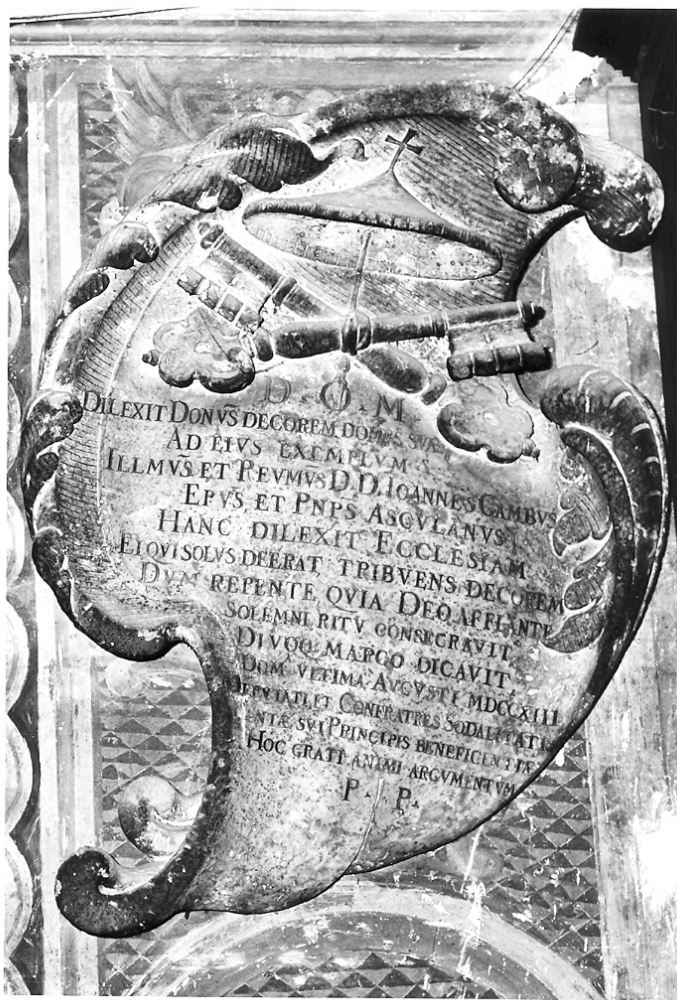 D. O. M.
DILEXIT DONVS DECOREM DOMVS SVÆ
AD EIVS EXEMPLVM
ILLMVS ET REVMVS D. D. IOANNES GAMBVS
EPVS ET PNPS ASCVLANVS
HANC DILEXIT ECCLESIAM
EI QVI SOLVS DEERAT TRIBVENS DECOREM
DVM REPENTE QVIA DEO AFFLANTE
SOLEMNI RITV CONSECRAVIT,
DIVOQ. MARCO DICAVIT,
DOM. VLTIMA AVGVSTI MDCCXIII
DEPVTATI ET CONFRATRES SODALITATIS
SVI PRINCIPIS BENEFICENTIÆ
HOC GRATI ANIMI ARGVMENTVM
P. P.